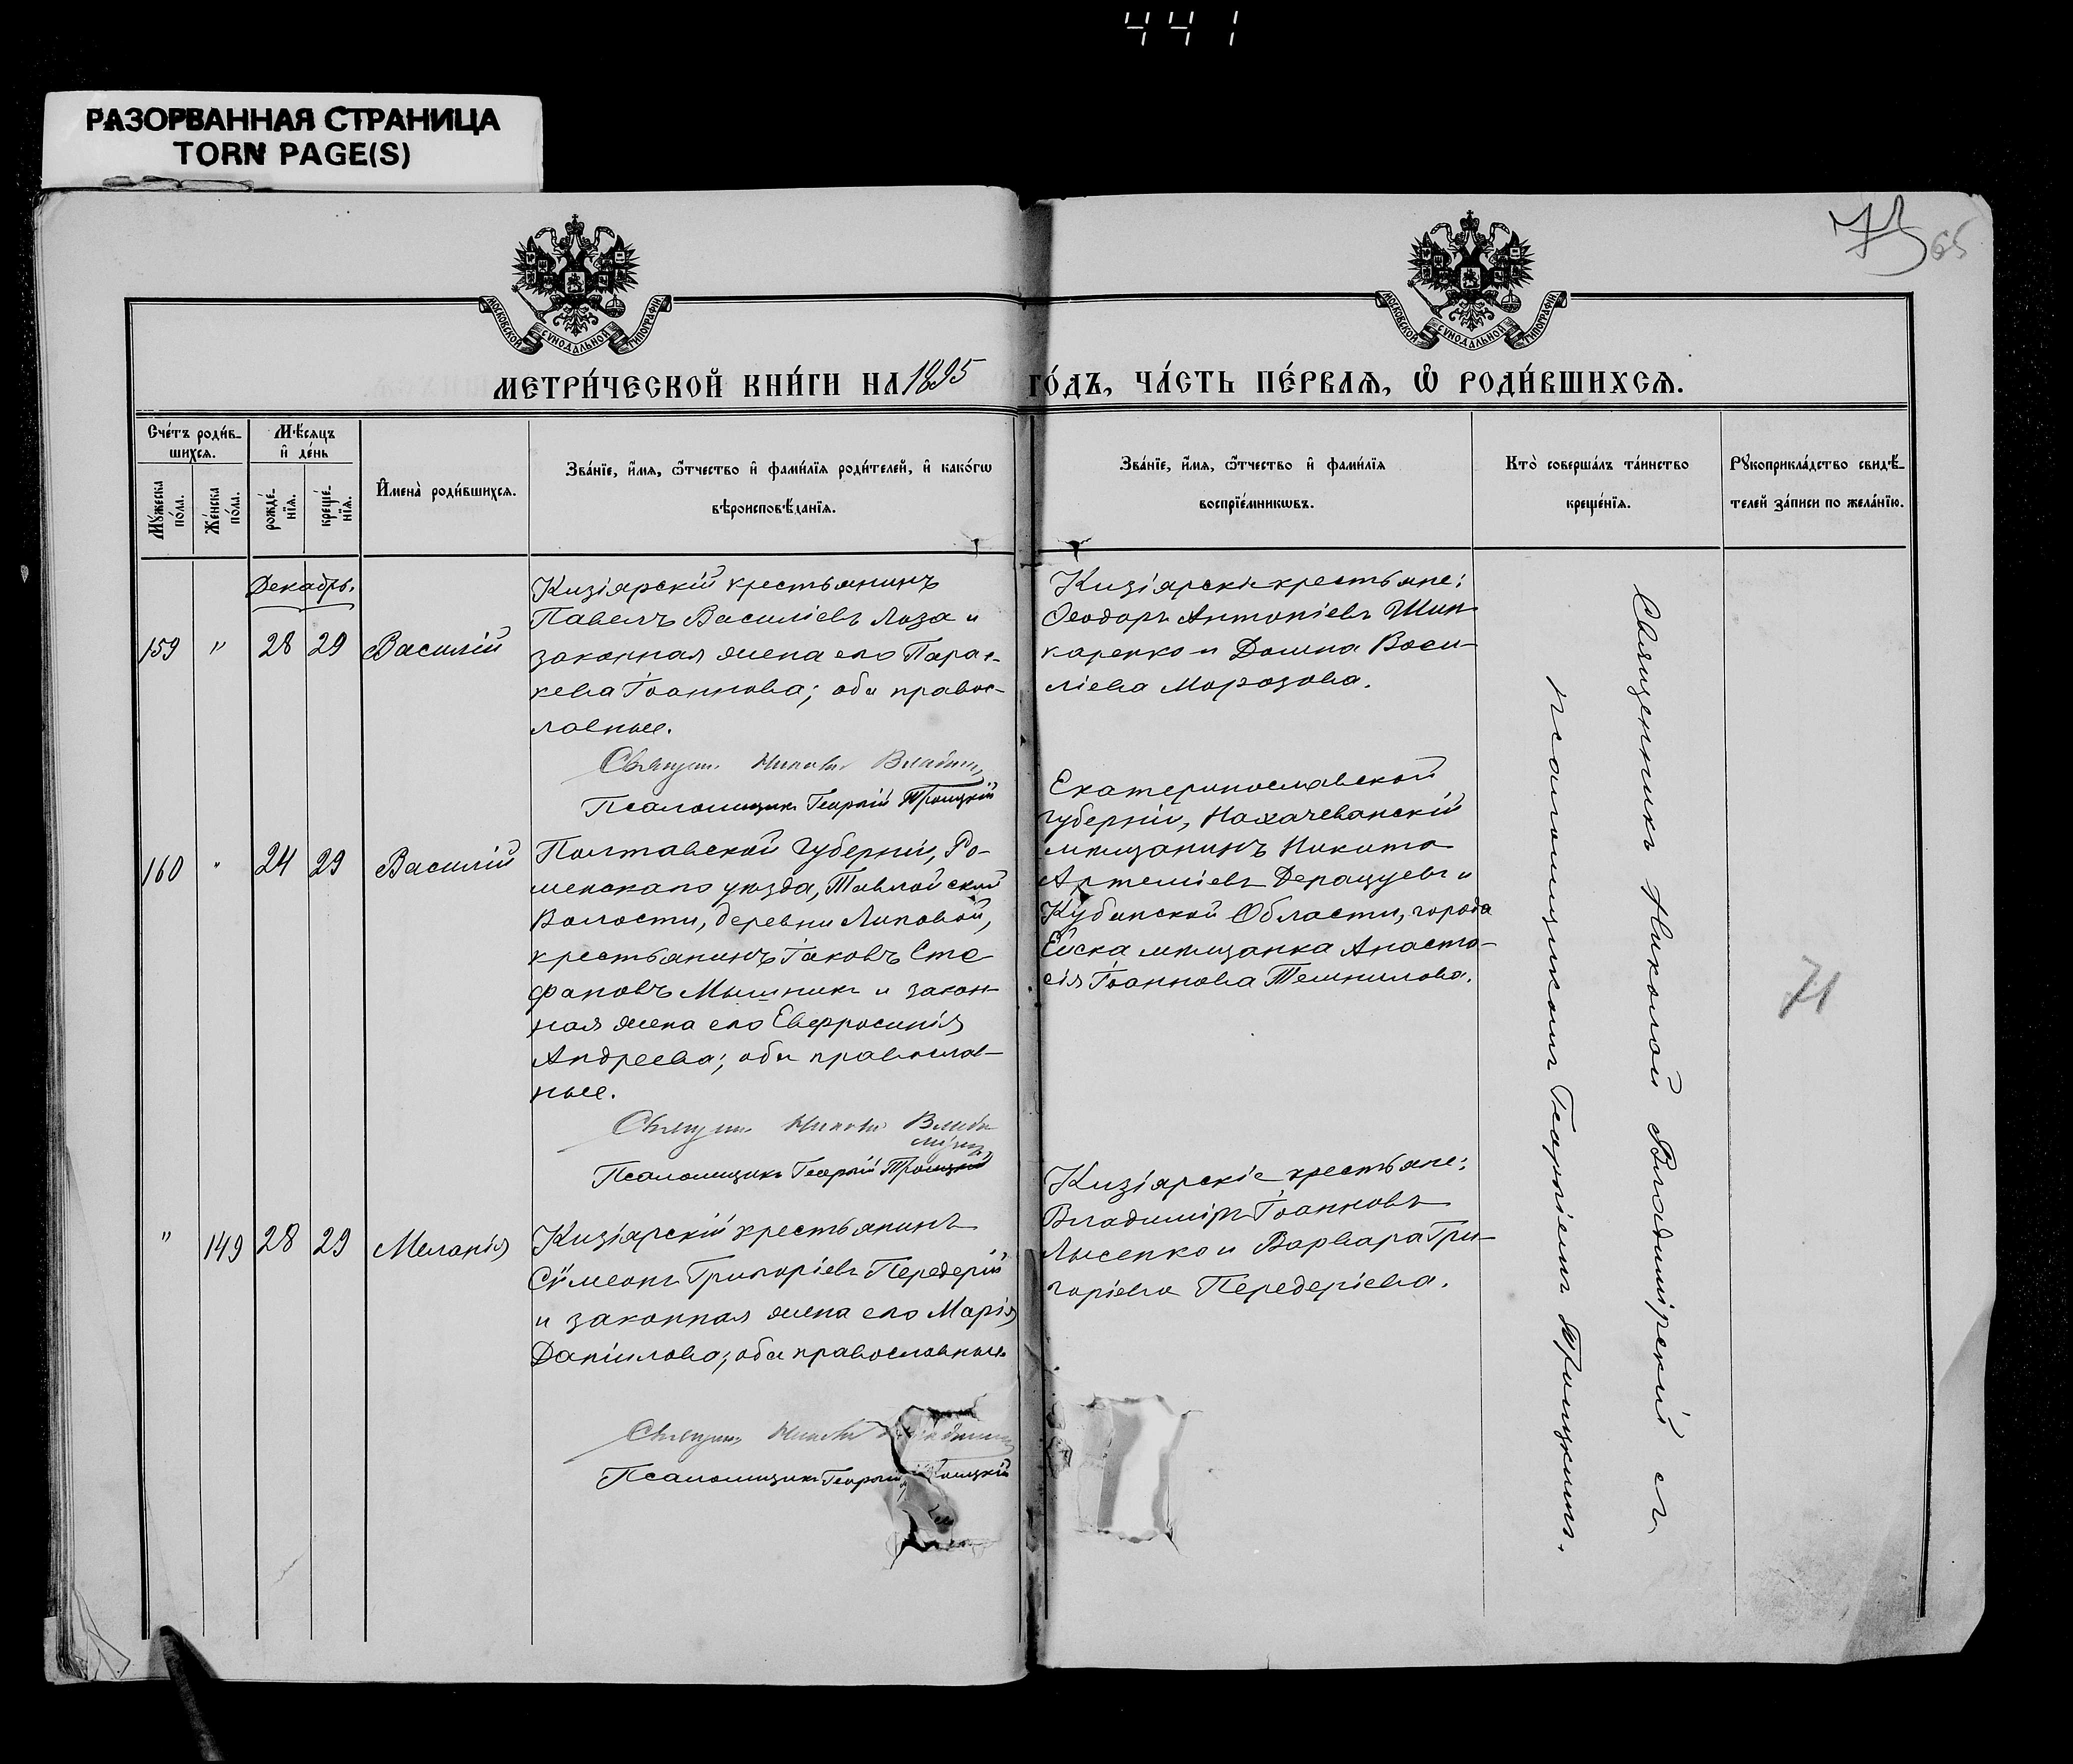 441
РАЗОРВАННАЯ СТРАНИЦА
TORN PAGE(S)
65
МОСКОВСКОЙ СѴНОДАЛЬНОЙ ТИПОГРАФІИ
МОСКОВСКОЙ СѴНОДАЛЬНОЙ ТИПОГРАФІИ
МЕТРИ́ЧЕСКОЙ КНИ́ГИ НА 1895 ГО́ДЪ, ЧА́СТЬ ПЕ́РВАЯ, Ѡ҆ РОДИ́ВШИХСЯ.
Сче́тъ роди́в-
шихся.
Му́жеска по́ла.
Же́нска по́ла.
Мѣ́сяцъ
и҆ де́нь
рожде́-
нїя.
креще́-
нїя.
И҆мена̀ роди́вшихся.
Зва́нїе, и҆́мя, ѻ҆́тчество и҆ фами́лїя роди́телей, и҆ како́гѡ
вѣроисповѣ́данїя.
Зва́нїе, и҆́мя, ѻ҆́тчество и҆ фами́лїя
воспрїе́мникѡвъ.
Кто̀ соверша́лъ та́инство
креще́нїя.
Рукоприкла́дство свидѣ́-
телей за́писи по жела́нїю.
Декабрь.
159 " 28 29 Василій
Кизіярскій крестьянинъ
Павелъ Василіевъ Лоза и
законная жена его Парас-
кева Іоаннова; оба правос-
лавные.
Священ. Николай Владим.
Псаломщикъ Георгій Троицкій
Кизіярскіе крестьяне:
Ѳеодоръ Антоніевъ Шин-
каренко и Домна Васи-
ліева Морозова.
160 " 24 29 Василій
Полтавской губерніи, Ро-
менскаго уѣзда,
Волости, деревни Липовой,
крестьянинъ Іаковъ Сте-
фановъ Мышникъ и закон-
ная жена его Евфросинія
Андреева; оба православ-
ные.
Священ. Николай Владимір.
Псаломщикъ Георгій Троицкій
Екатеринославской
губерніи, Нахичеванскій
мѣщанинъ Никита
Артеміевъ и
Кубанской Области, города
Ейска мѣщанка Анаста-
сія Іоаннова Темнилова.
" 149 28 29 Меланія
Кизіярскій крестьянинъ
Сѵмеонъ Григоріевъ Передерій
и законная жена его Марія
Даніилова; оба православные.
Священ. Николай
Псаломщикъ Георгій Троицкій
Кизіярскіе крестьяне:
Владиміръ Іоанновъ
Лысенко и Варвара Гри-
горіева Передеріева.
Священникъ Николай Владимірскій съ
псаломщикомъ Георгіемъ Троицкимъ.
71